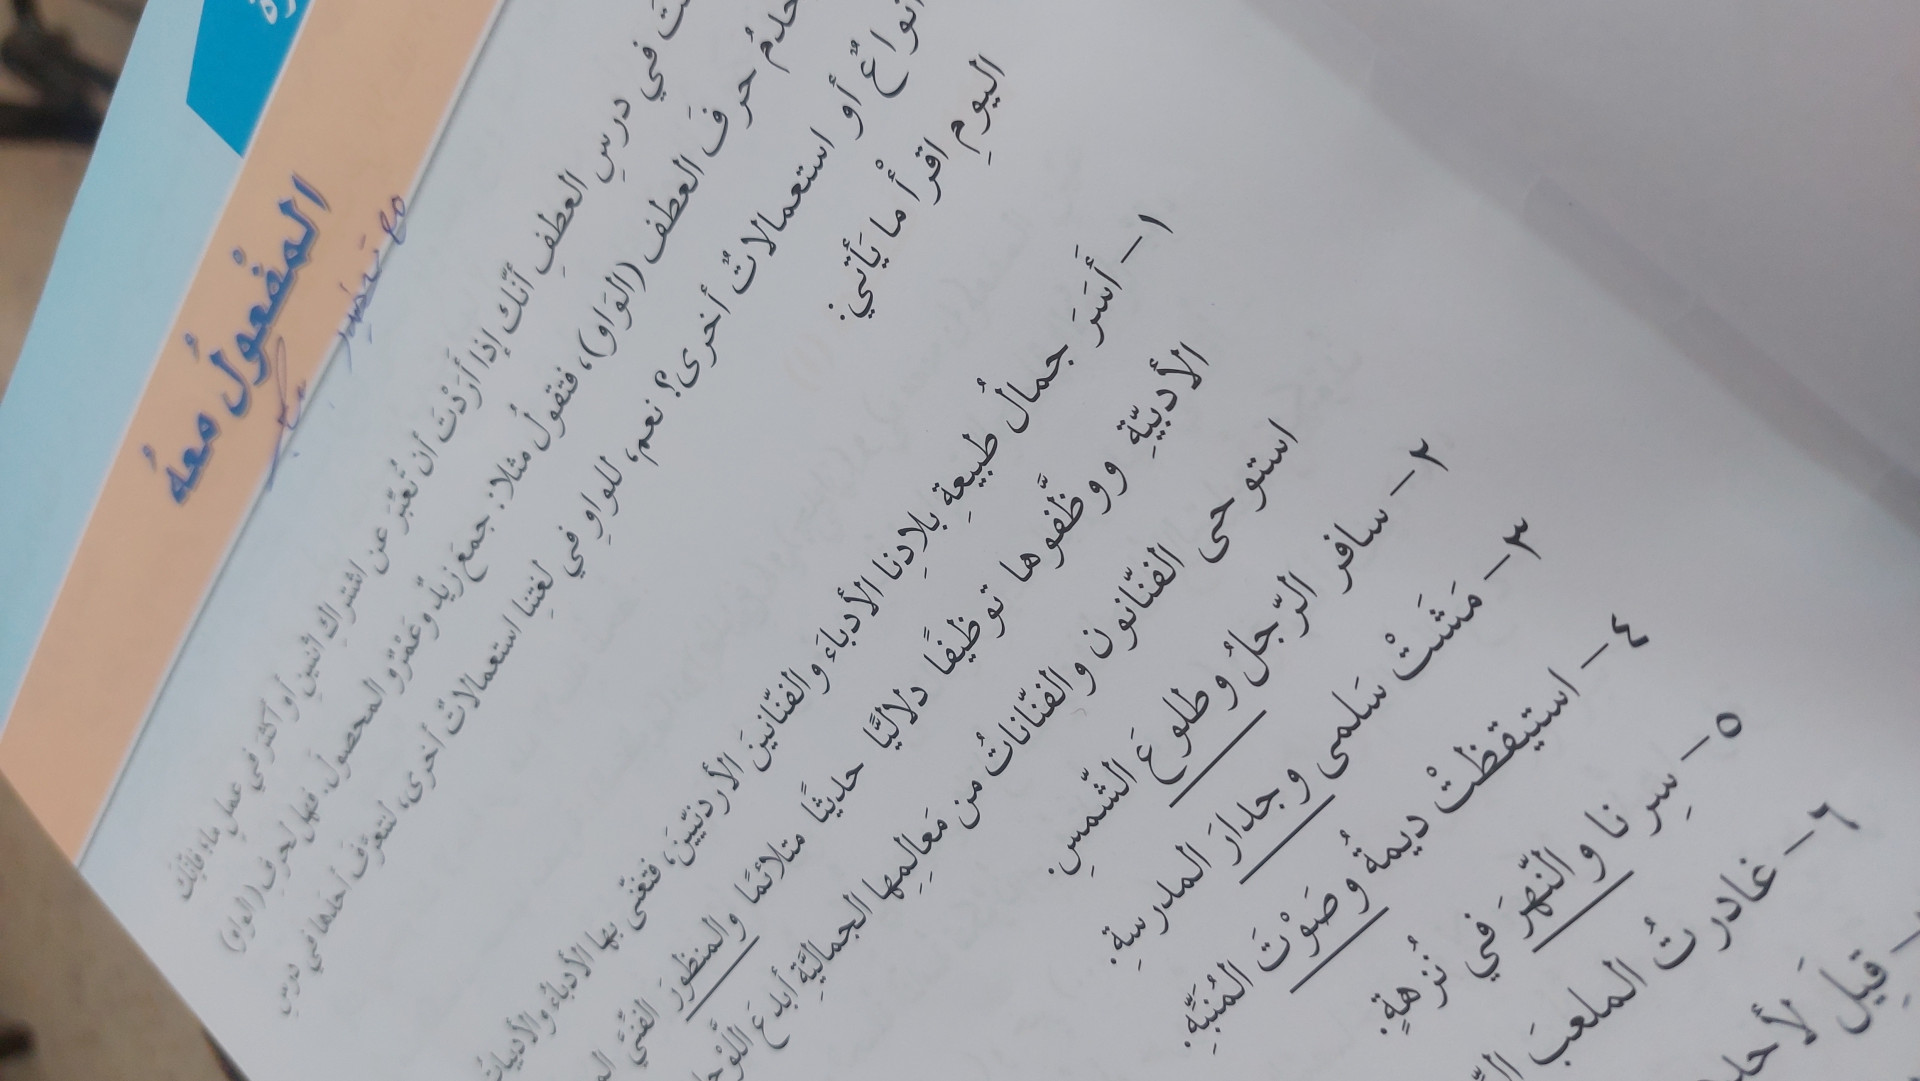 المفْعولُ معهُ
ـتَ في درسِ العطفِ أنّك إذا أرَدْتَ أن تُعَبِّرَ عن اشتراكِ اثنينِ أو أكثر في عملٍ ما، فإنّك
حرفَ العطف (الوَاو)، فتقولُ مثلا: جمعَ زيدٌ وعَمْرٌو المحصولَ. فهل لحرفِ (الواو)
أنواعٌ أو استعمالاتٌ أخرى؟ نعم، للواوِ في لغتِنا استعمالاتٌ أخرى، لنتعرَّف أحدَها في درسِ
اليومِ اقرأْ ما يَأتي:
١- أَسَرَ جمالُ طبيعةِ بلادِنا الأدباءَ والفنّانينَ الأردنيّينَ، فتغنّى بها الأدباءُ والأديباتُ
الأدبيّةِ ووظَّفوها توظيفًا دلاليًّا حديثًا متلائمًا والمنظورَ الفنّيَّ
استوحى الفنّانون والفنّاناتُ من مَعالِمِها الجماليّةِ أبدعَ
٢- سافر الرّجلُ وطلوعَ الشّمسِ.
٣- مَشَتْ سَلمى وجدارَ المدرسةِ.
٤- استيقظتْ ديمةُ وصَوْتَ المُنَبِّهِ.
٥- سِرنا والنّهرَ في نُزهةٍ.
٦- غادرتُ الملعبَ
قِيلَ لأحدِ